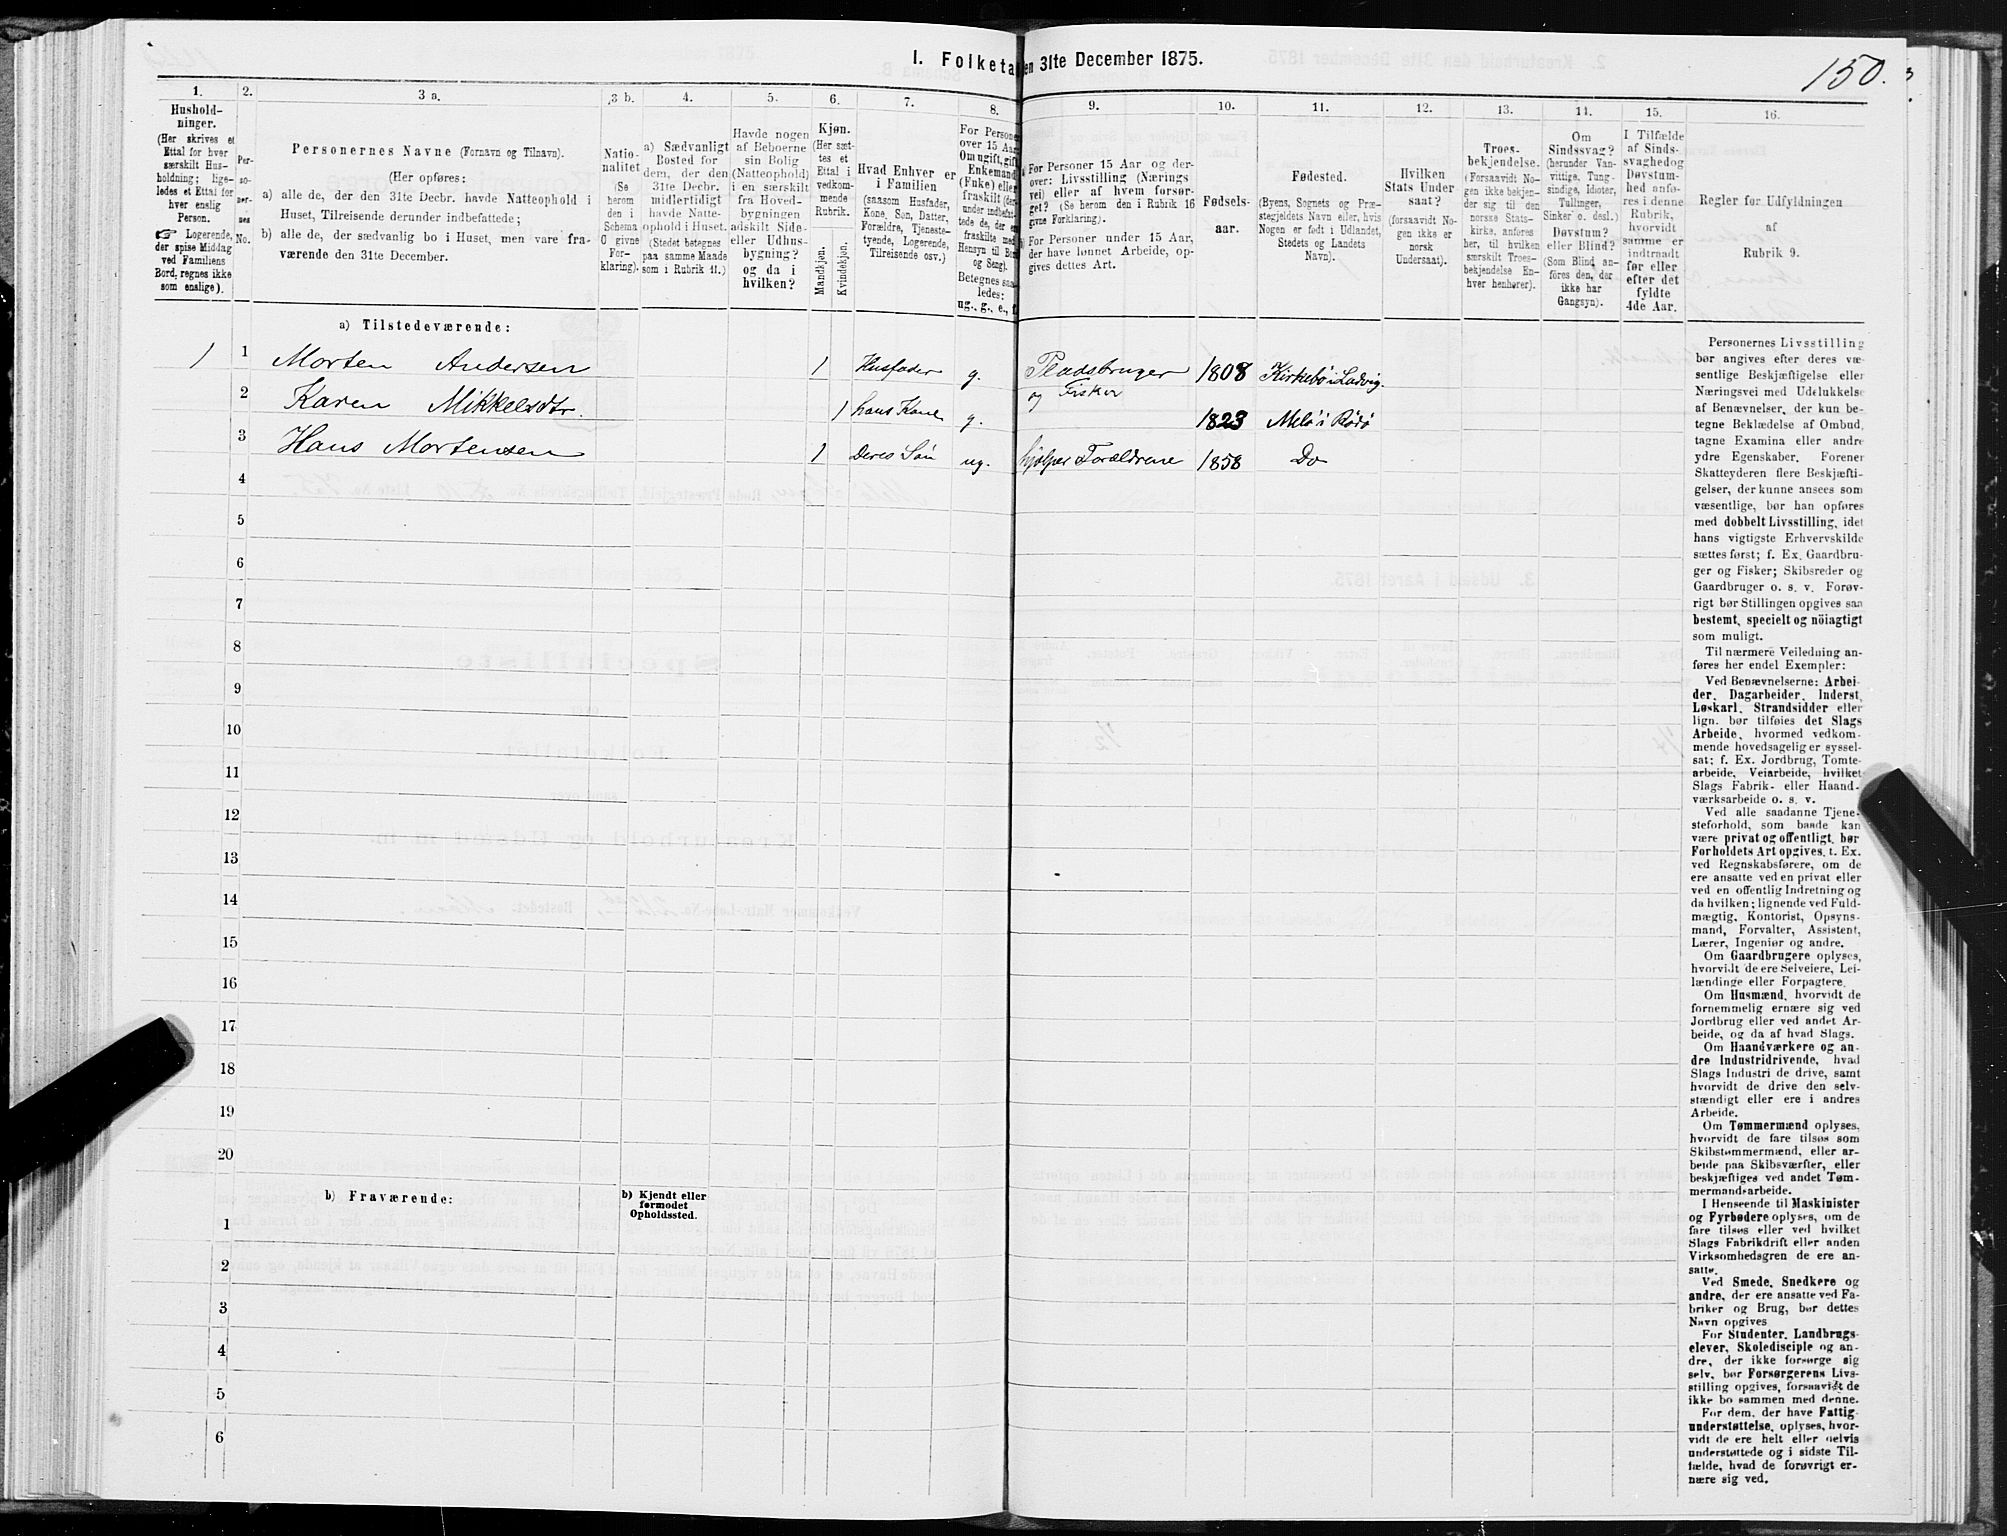 I. Folketa en 31te December 1875.
150.
1. 2. 3 a. 3 b. 4. 5. 6. 7. 8. 9. 10. 11. 12. 13. 14. 15. 16.
Hushold-
ninger.
(Her skrives et
Ettal for hver
særskilt Hus-
holdning; lige-
ledes et Ettal for
hver enslig
Person.
☞ Logerende,
der spise Middag
ved Familiens
Bord, regnes ikke
som enslige).
Per-
so-
ner-
nes
No.
Personernes Navne (Fornavn og Tilnavn).
(Her opføres:
a) alle de, der den 31te Decbr. havde Natteophold i
Huset, Tilreisende derunder indbefattede;
b) alle de, der sædvanlig bo i Huset, men vare fra-
værende den 31te December.
Natio-
nalitet
(Se
herom
den i
Schema
O givne
For-
klaring).
a) Sædvanligt
Bosted for
dem, der den
31te Decbr.
midlertidigt
havde Natte-
ophold i Huset.
(Stedet betegnes
paa samme Maade
som i Rubrik 11.)
Havde nogen
af Beboerne
sin Bolig
(Natteophold)
i en særskilt
fra Hoved-
bygningen
adskilt Side-
eller Udhus-
bygning?
og da i
hvilken?
Kjøn.
(Her sæt-
tes et
Ettal i
vedkom-
mende
Rubrik.
Mandkjøn.
Kvindekjøn.
Hvad Enhver er
i Familien
(saasom Husfader,
Kone, Søn, Datter,
Forældre, Tjeneste-
tyende, Logerende,
Tilreisende osv.)
For Persone
over 15 Aar
Om ugift, gift
Enkemand
(Enke) eller
fraskilt (der-
under indbefat-
tede de, der er
fraskilte med
Hensyn til Bo
og Seng).
Betegnes saa-
ledes:
ug., g., e., f.
a) For Personer 15 Aar og der-
over: Livsstilling (Nærings
vei) eller af hvem forsør-
get? (Se herom den i Rubrik 16
givne Forklaring).
b) For Personer under 15 Aar,
der have lønnet Arbeide, op-
gives dettes Art.
Fødsels-
aar.
Fødested.
(Byens, Sognets og Præ-
stegjeldets Navn eller, hvis
Nogen er født i Udlandet,
Stedets og Landets
Navn).
Hvilken
Stats Under
saat?
(forsaavidt No-
gen ikke er
norsk
Undersaat).
Troes-
bekjendelse.
(Forsaavidt No-
gen ikke bekjen-
der sig til den
norske Stats-
kirke, anføres
her, til hvilken
særskilt Troes-
bekjendelse En-
hver henhører).
Om
Sindssvag?
(herunder Van-
vittige, Tung-
sindige, Idioter,
Tullinger,
Sinker o. desl.)
Døvstum?
eller Blind?
(Som Blind an-
føres den, der
ikke har
Gangsyn).
I Tilfælde
af Sinds-
svaghed og
Døvstum-
hed anfø-
res i denne
Rubrik,
hvorvidt
samme er
indtraadt
før eller
efter det
fyldte
4de Aar.
Regler for Udfyldningen
af
Rubrik 9.
a) Tilstedeværende:
1 1 Morten Andersen 1 Husfader g. Pladsbruger og Fisker 1808 Kirkebø i Ladvig.
2 Karen Mikkelsdtr. 1 hans Kone g. 1823 Melö i Rödö
3 Hans Mortensen 1 Deres Sön ug. hjelper Forældrene 1858 Do
4
5
6
7
8
9
10
11
12
13
14
15
16
17
18
19
20
b) Fraværende:
b) Kjendt eller
formodet
Opholdssted.
1
2
3
4
5
6
Personernes Livsstilling
bør angives efter deres væ-
sentlige Beskjæftigelse eller
Næringsvei med Udelukkelse
af Benævnelser, der kun be-
tegne Beklædelse af Ombud,
tagne Examina eller andre
ydre Egenskaber. Forener
Skatteyderen flere Beskjæfti-
gelser, der kunne ansees som
væsentlige, bør han opføres
med dobbelt Livsstilling, idet
hans vigtigste Erhvervskilde
sættes først; f. Ex. Gaardbru-
ger og Fisker; Skibsreder og
Gaardbruger o. s. v. Forøv-
rigt bør Stillingen opgives saa
bestemt, specielt og nöiagtigt
som muligt.
Til nærmere Veiledning an-
føres her endel Exempler:
Ved Benævnelserne: Arbei-
der, Dagarbeider, Inderst,
Løskarl, Strandsidder eller
lign. bør tilføies det Slags
Arbeide, hvormed vedkom-
mende hovedsagelig er syssel-
sat; f. Ex. Jordbrug, Tomte-
arbeide, Veiarbeide, hvilket
Slags Fabrik- eller Haand-
værksarbeide o. s. v.
Ved alle saadanne Tjene-
steforhold, som baade kan
være privat og offentligt, bør
Forholdets Art opgives, t. Ex.
ved Regnskabsførere, om de
ere ansatte ved en privat eller
ved en offentlig Indretning og
da hvilken; lignende ved Fuld-
mægtig, Kontorist, Opsyns-
mand, Forvalter, Assistent,
Lærer, Ingeniør og andre.
Om Gaardbrugere oplyses,
hvorvidt de ere Selveiere, Lei-
lændinge eller Forpagtere.
Om Husmænd, hvorvidt de
fornemmelig ernære sig ved
Jordbrug eller ved andet Ar-
beide, og da af hvad Slags.
Om Haandværkere og an-
dre Industridrivende, hvad
Slags Industri de drive, samt
hvorvidt de drive den selv-
stændigt eller ere i andres
Arbeide.
Om Tømmermænd oplyses,
hvorvidt de fare tilsøs som
Skibstømmermænd, eller ar-
beide paa Skibsværfter, eller
beskjæftiges ved andet Tøm-
mermandsarbeide.
I Henseende til Maskinister
og Fyrbødere oplyses, om de
fare tilsøs eller ved hvilket
Slags Fabrikdrift eller anden
Virksomhedsgren de ere an-
satte.
Ved Smede, Snedkere og
andre, der ere ansatte ved Fa-
briker og Brug, bør dettes
Navn opgives
For Studenter, Landbrugs-
elever, Skoledisciple og an-
dre, der ikke forsørge sig
selv, bør Forsørgerens Livs-
stilling opgives, forsaavidt de
ikke bo sammen med denne.
For dem, der have Fattig-
understøttelse, oplyses, hvor-
vidt de ere helt eller delvis
understøttede og i sidste Til-
fælde, hvad de forøvrigt er-
nære sig ved.